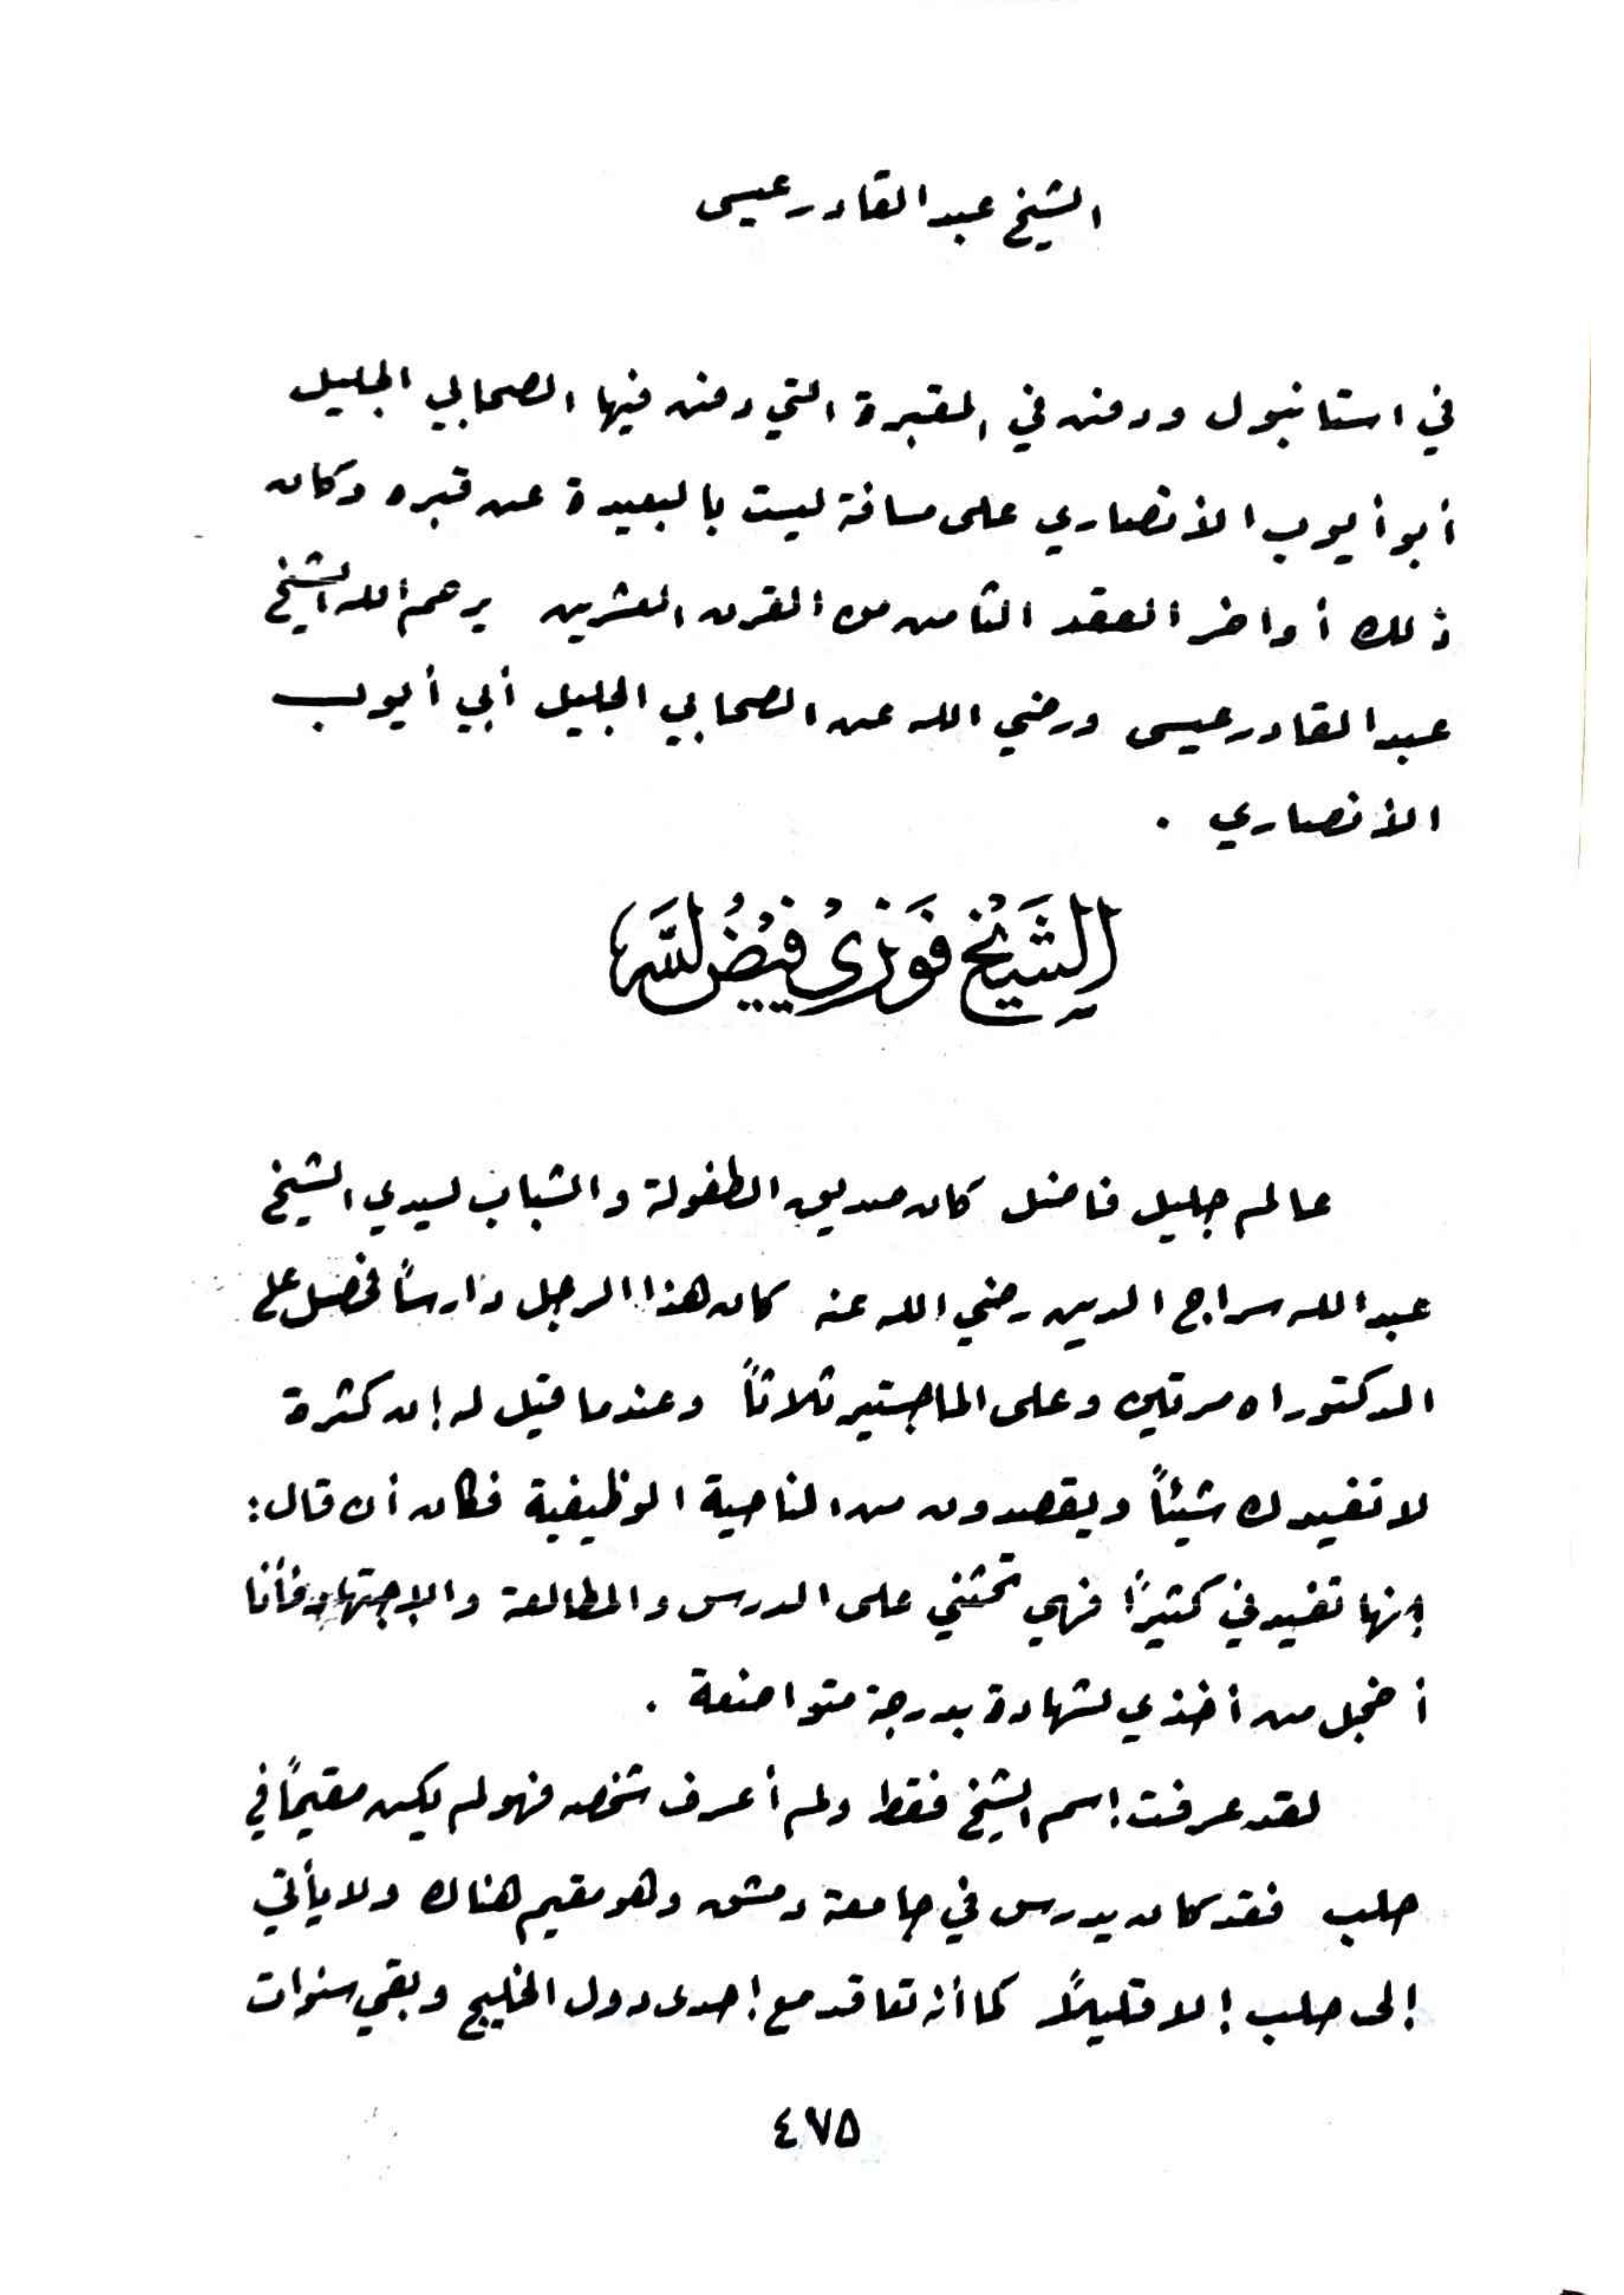 الشيخ عبد القادر عيسى
في استانبول ودفن في المقبرة التي دفن فيها الصحابي الجليل
أبو أيوب الأنصاري على مسافة ليست بالبعيدة عن قبره وكان
ذلك أواخر العقد الثامن من القرن العشرين يرحم الله الشيخ
عبد القادر عيسى ورضي الله عن الصحابي الجليل أبي أيوب
الأنصاري .
الشَيْخ فَوْزِيْ فَيْضُ اللَّه
عالم جليل فاضل كان صديق الطفولة والشباب لسيدي الشيخ
عبد الله سراج الدين رضي الله عنه كان هذا الرجل دارساً فحصل على
الدكتوراه مرتين وعلى الماجستير ثلاثاً وعندما قيل له إن كثرة
لا تفيدك شيئاً ويقصدون من الناحية الوظيفية فكان أن قال:
إنها تفيدني كثيراً فهي تحثني على الدرس والمطالعة والإجتهاد فأنا
أخجل من أخذي لشهادة بدرجة متواضعة .
لقد عرفت إسم الشيخ فقط ولم أعرف شخصه فهو لم يكن مقيماً في
حلب فقد كان يدرس في جامعة دمشق وهو مقيم هناك ولا يأتي
إلى حلب إلا قليلاً كما أنه تعاقد مع إحدى دول الخليج وبقي سنوات
٤٧٥